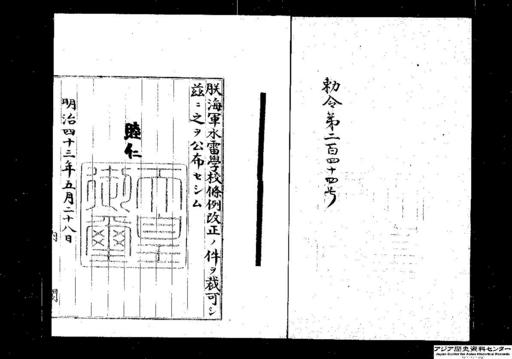 勅令第二百四十四号
朕海軍水雷學校條例改正ノ件ヲ裁可シ
茲ニ之ヲ公布セシム
睦仁
天皇
御璽
明治四十三年五月二十八日
内
閣
アジア歴史資料センター
Japan Center for Asian Historical Records